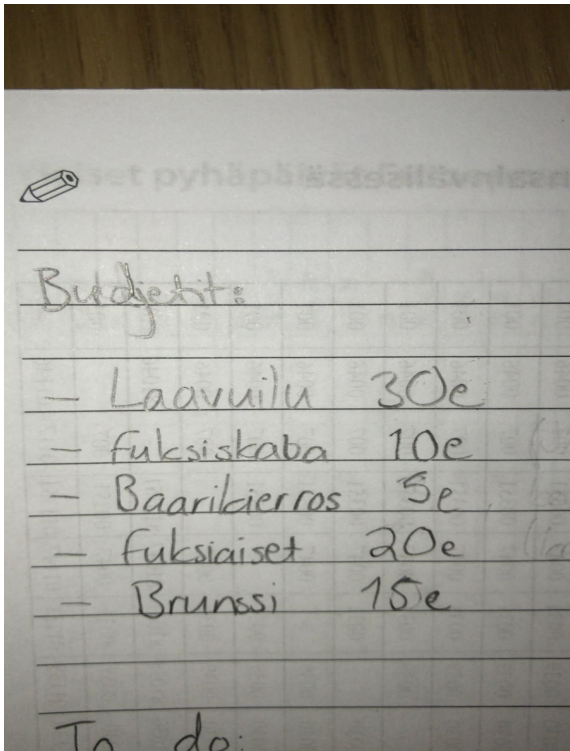 Budjetit:
- Laavuilu 30e
- fuksiskaba 10e
- Baarikierros 5e
- fuksiaiset 20e
- Brunssi 15e
To do: